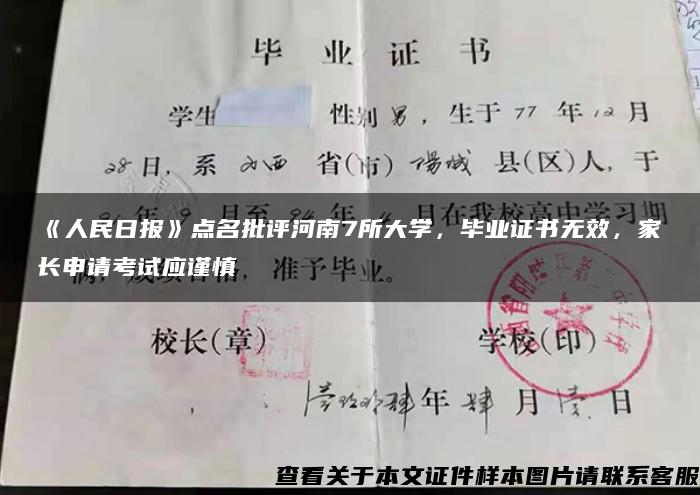 毕业证书
学生 性别男，生于77年12月
28日，系山西省(市)陽城县(区)人，于
年9月至94年 月在我校高中学习期
《人民日报》点名批评河南7所大学，毕业证书无效，家
长申请考试应谨慎
满，成绩合格，准予毕业。
校长(章) 学校(印)
壹玖玖肆年肆月壹日
查看关于本文证件样本图片请联系客服